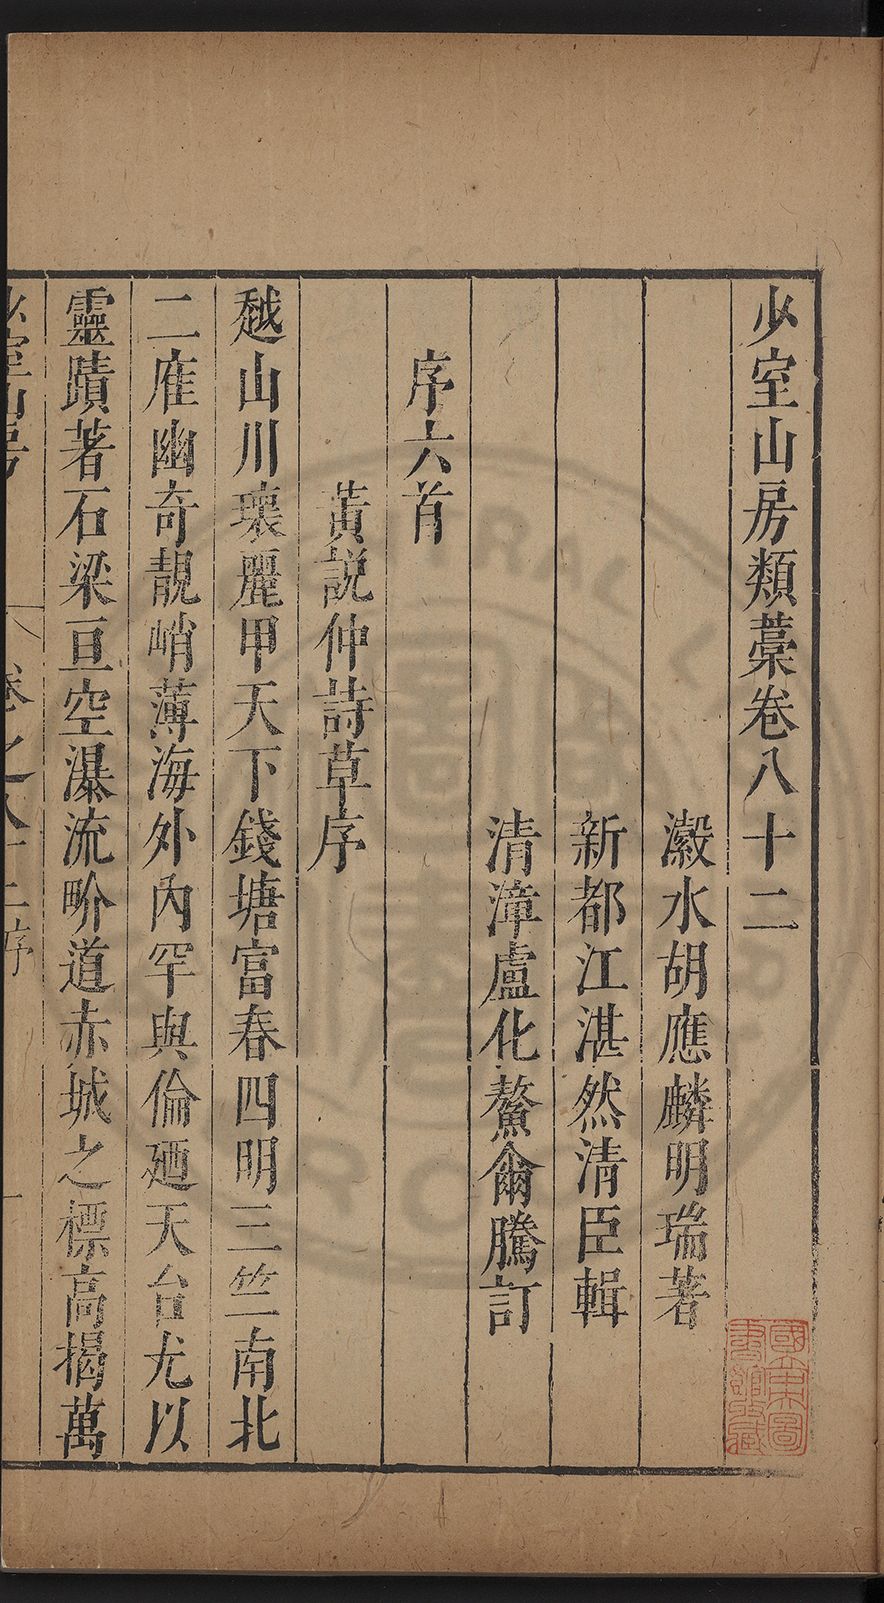 少室山房類藁卷八十二
瀫水胡應麟明瑞著
新都江湛然清臣輯
清漳盧化鰲爾騰訂
序六首
黃說仲詩草序
越山川瓌麗甲天下錢塘富春四明三竺南北
二雁幽奇靚峭薄海外內罕與倫廼天台尤以
靈蹟著石梁亘空瀑流畍道赤城之標高揭萬
少室山房
卷之八十二序
一
國立中央圖書館收藏